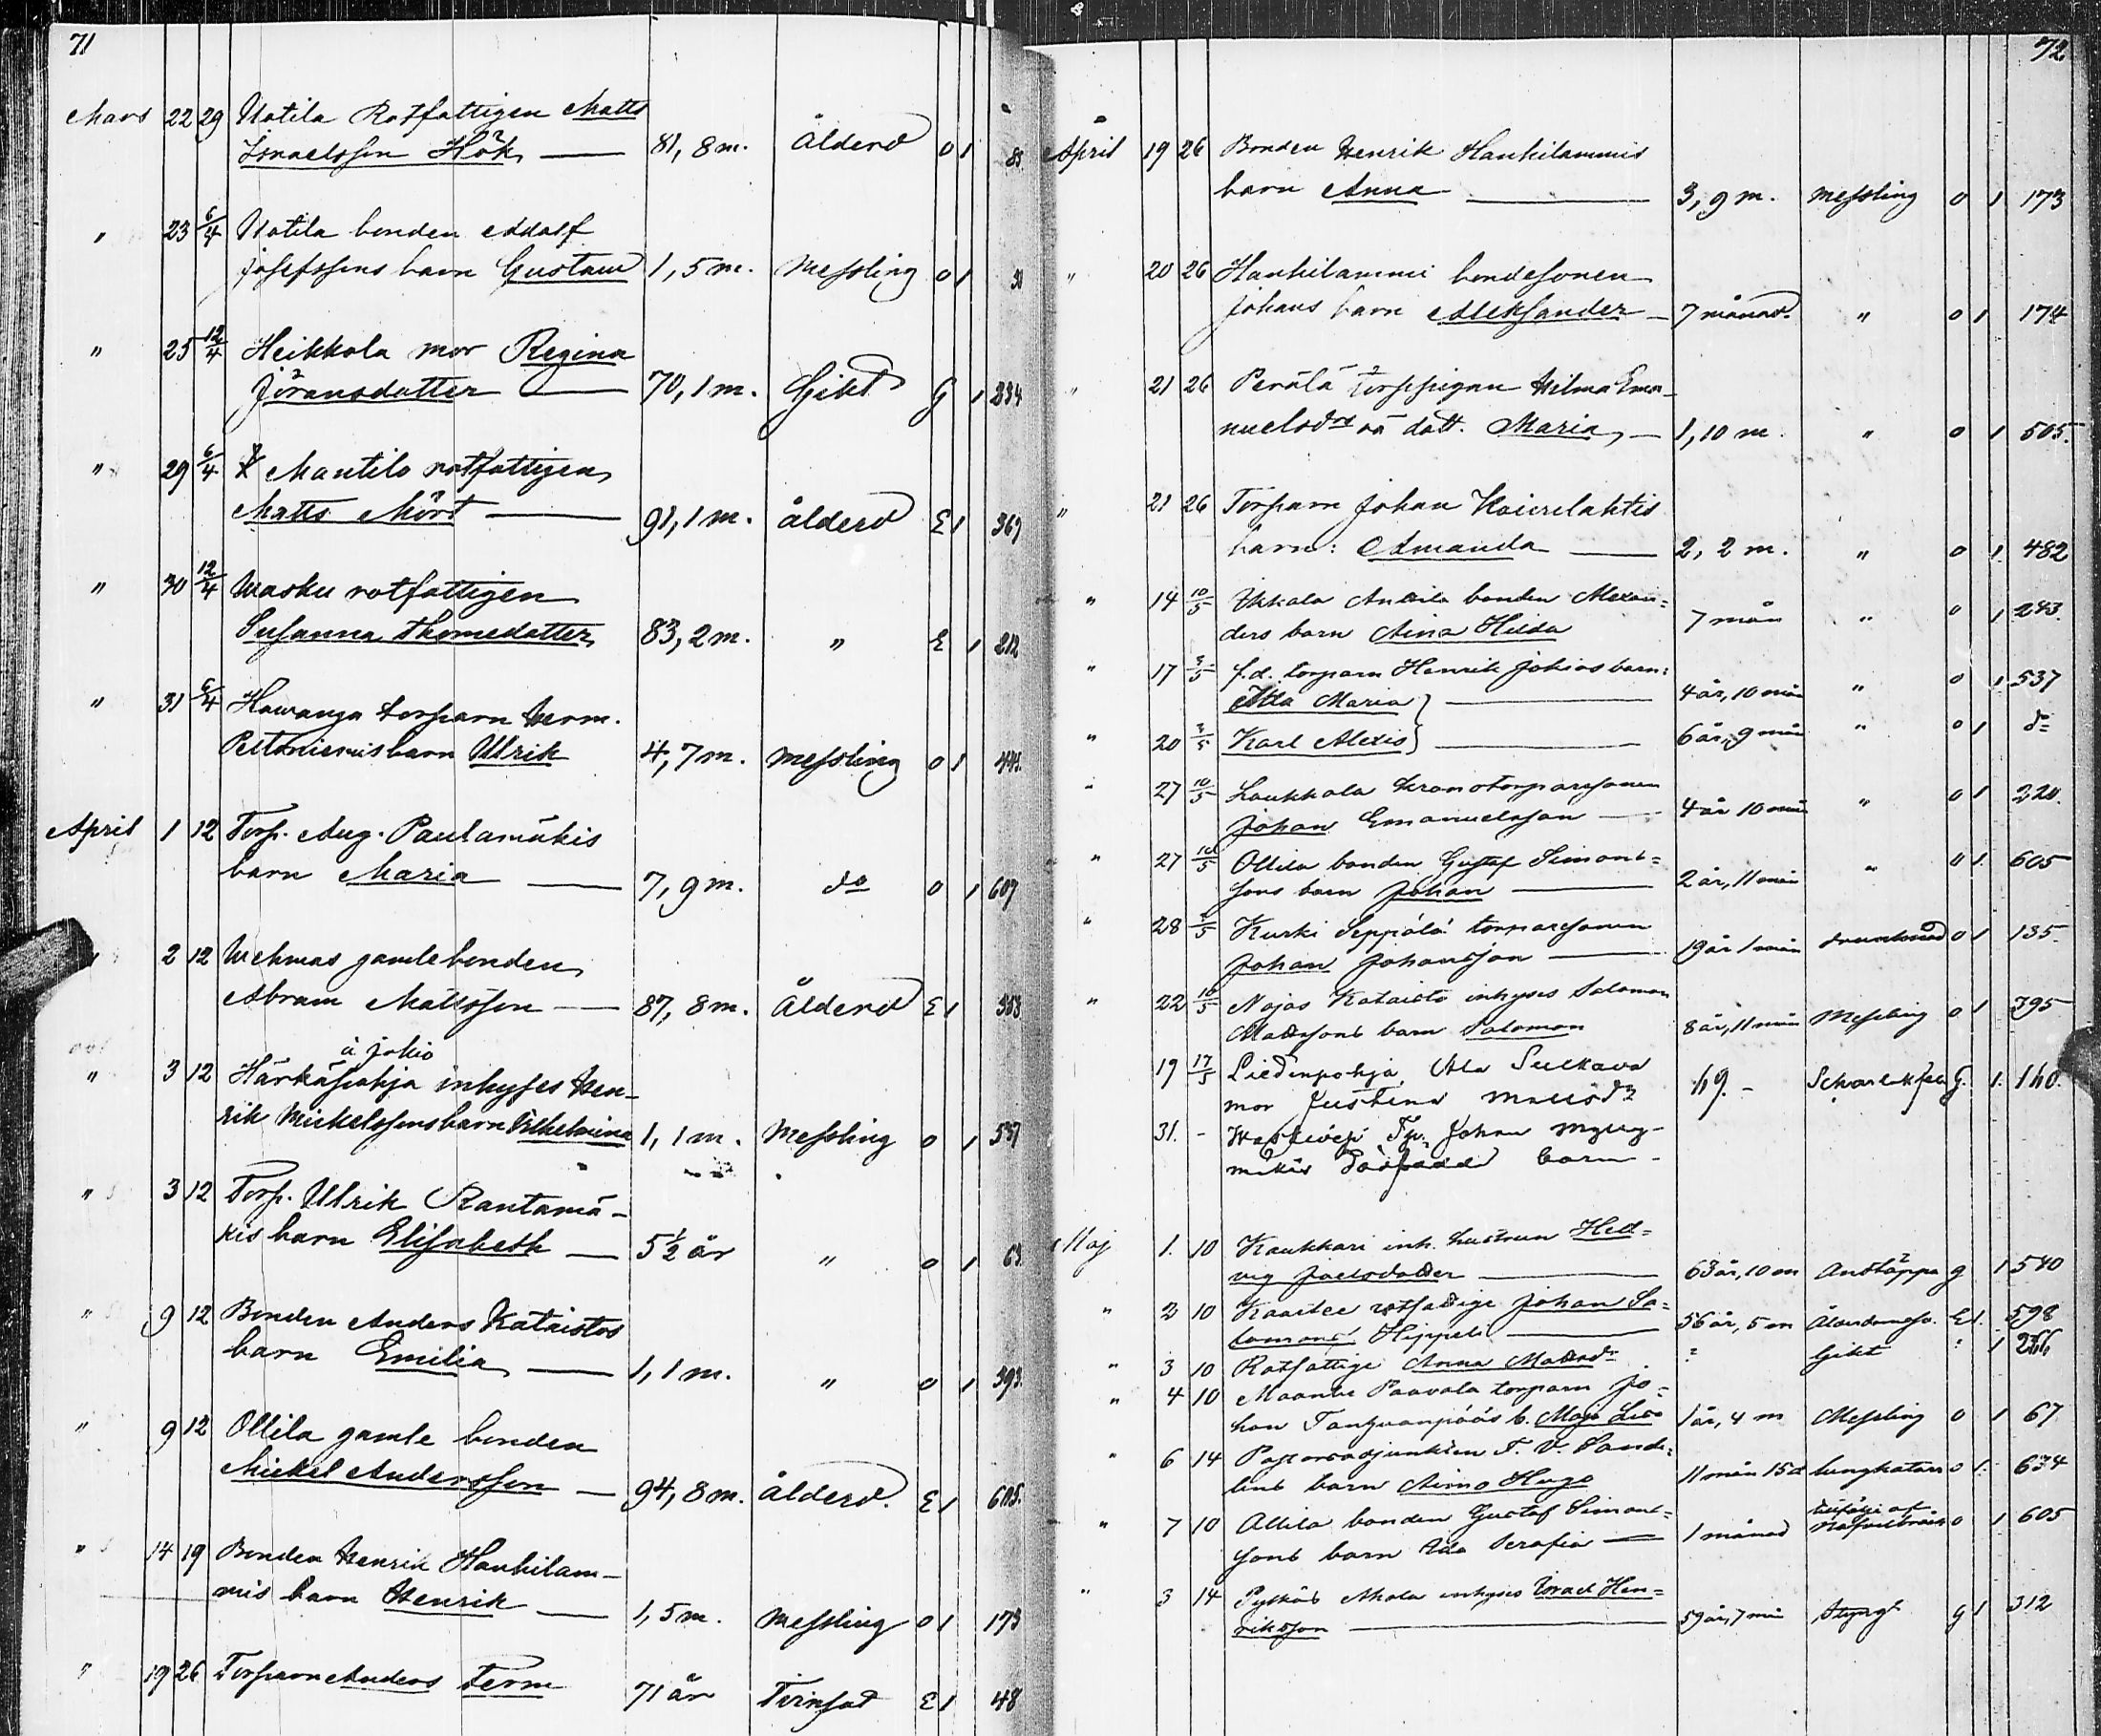 71
Mars 22 29 Uotila Rotfattigen Matts
Israelsson Hök 81, 8 m. Ålderd o 1
" 23 6/4 Uotila bonden Adolf
Josefssons barn Gustaw 1, 5 m. Messling o 1
" 25 12/4 Heikkola mor Regina
Jöransdotter 70, 1 m. Gikt g 1 234
" 29 6/4 Mantila rotfattigen
Matts Mört 91, 1 m. ålderd E 1 369
" 30 12/4 Wasku rotfattigen
Susanna Thomedotter 83, 2 m. " E 1 212
" 31 6/4 Hawanga torparn Herm.
Peltoniemis barn Ulrik 4, 7 m. Messling o 1 444.
April 1 12 Torp. Aug. Paulamäkis
barn Maria 7, 9 m. do o 1 607
2 12 Wehmas gamle bonden
Abram Mattsson 87, 8 m. Ålderd E 1 353
à Jokio
" 3 12 Härkäpohja inhyses Hen-
rik Mickelssons barn Wilhelmina 1, 1 m. Messling o 1 537
" 3 12 Torp. Ulrik Rantamä-
kis barn Elisabeth 5 1/2 år " o 1 63.
" 9 12 Bonden Anders Kataistos
barn Emilia 1, 1 m. " o 1 393.
" 9 12 Ollila gamle bonden
Mickel Andersson 94, 8 m. Ålderd. E 1 605.
" 14 19 Bonden Henrik Hauhilam-
mis barn Henrik 1, 5 m. Messling o 1 173
" 19 26 Torparn Anders Term 71 år Tvinsot E 1 48
72
April 19 26 Bonden Henrik Hanhilammis
barn Anna 3, 9 m. Messling o 1 173
" 20 26 Hanhilammi bondesonen
Johans barn Aleksander 7 månad. " o 1 174
" 21 26 Perälä torppigan Wilma Ema-
nuelsdrs oä dott. Maria 1, 10 m. " o 1 505.
" 21 26 Torparn Johan Koiwulahtis
barn: Amanda 2, 2 m. " o 1 482
" 14 10/5 Ikkala Anttila bonden Alexan=
ders barn Aina Hilda 7 mån " o 1 243.
" 17 3/5 f.d. torparn Henrik Jokios barn:
Maria 4 år, 10 mån " o 1 537
" 20 3/5 Karl Alexis 6 år, 9 mån " o 1 do
" 27 10/5 Laukkola kronotorparesonen
Johan Emanuelsson 4 år 10 mån " o 1 220.
" 27 10/5 Ollila bonden Gustaf Simons=
sons barn Johan 2 år, 11 mån " o 1 605
" 28 /5 Kurki Seppälä torparesonen
Johan Johansson 19 år 1 mån o 1 135
" 22 10/5 Nojas Kataisto inhyses Salomon
Mattssons barn Salomon 8 år, 11 mån Messling o 1 395
19 17/5 Liedenpohja Ala Sulkava
mor Justina 49. - g. 1. 140.
31. - Johan
barn -
Maj 1. 10 Kaukkari inh. hustrun Hed=
vig Joelsdotter 63 år, 10 m Andtäppa g 1 540
" 2 10 rotfattige Johan Sa=
lomons 56 år, 5 m E 1. 598
" 3 10 Rotfattige Anna Mattsdr : Gikt : 1 266
" 4 10 Paavola torparn Jo=
han b. Maja Lisa 1 år, 4 m Messling o 1 67
" 6 14 Pastorsadjunkten F. V. Sande=
lins barn Aimo Hugo 11 mån 15 d lungkatarr o 1. 634
" 7 10 Ollila bonden Gustaf Simons=
sons barn Ida Serafia 1 månad o 1 605
" 3 14 inhyses Israel Hen=
riksson 59 år, 7 mån Styng g 1 312